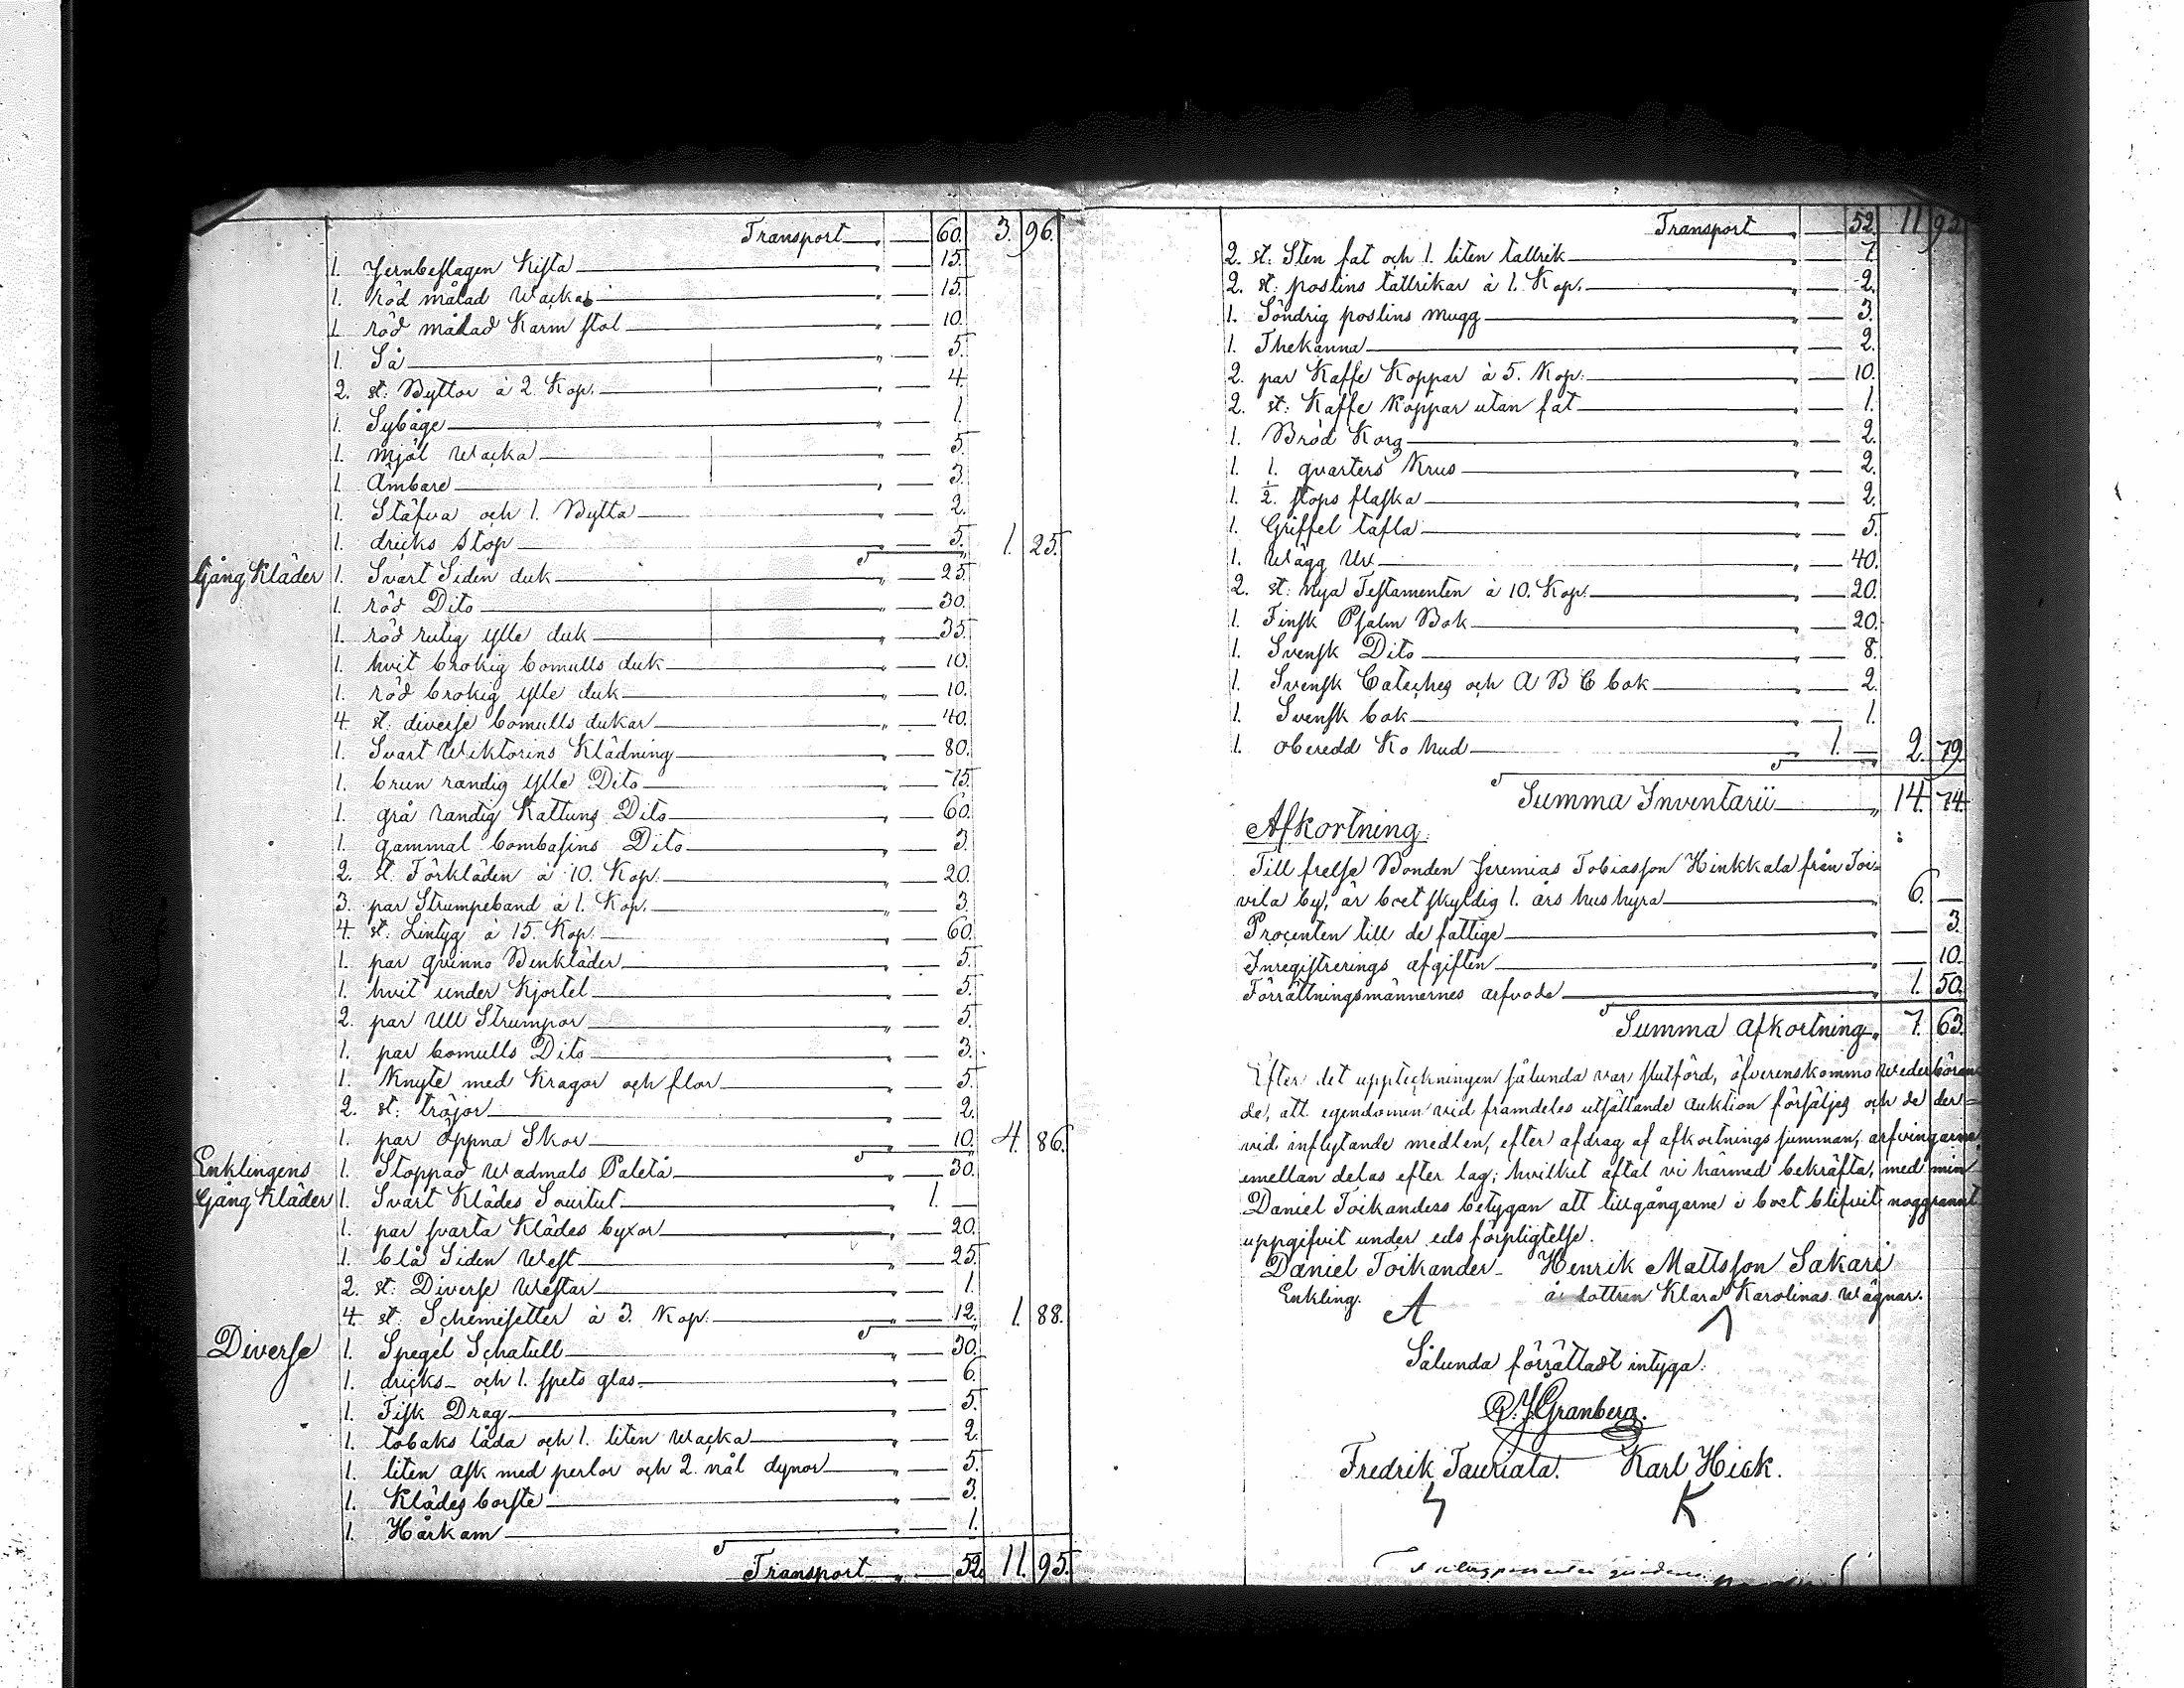 Transport — 60. 3. 96.
1. Jernbeslagen Kista — 15.
1. röd målad Wacka — 15.
1. röd målad Karm stol — 10.
1. Så — 5.
2. st: Byttor à 2 Kop. — 4.
1. Sybåge — 1.
1. mjöl Wacka — 5.
1. Ämbare — 3.
1. Stäfva och 1. Bytta — 2.
1. dricks Stop — 5. 1. 25.
Gång Kläder 1. Svart Siden duk — 25.
1. röd Dito — 30.
1. röd rutig ylle duk — 35.
1. hvit brokig bomulls duk — 10.
1. röd brokig ylle duk — 10.
4. st: diverse bomulls dukar — 40.
1. Svart Wiktorins Klädning — 80.
1. brun randig ylle Dito — 75.
1. grå randig Kattuns Dito — 60.
1. gammal bombasins Dito — 3.
2. st. Förkläden à 10. Kop. — 20.
3. par Strumpeband à 1. Kop. — 3.
4. st: Lintyg à 15. Kop. — 60.
1. par qvinno Benkläder — 5.
1. hvit under Kjortel — 5.
2. par Ull Strumpor — 5.
1. par bomulls Dito — 3.
1. Knyte med Kragor och flor — 5.
2. st: tröjor — 2.
1. par öppna Skor — 10. 4. 86.
Enklingens 1. Stoppad Wadmals Paletå — 30.
Gång Kläder 1. Svart Klädes Sourtut — 1. —
1. par svarta Klädes byxor — 20.
1. blå Siden West — 25.
2. st: Diverse Westar — 1.
4. st: Schemisetter à 3. Kop. — 12. 1. 88.
Diverse 1. Spegel Schatull — 30.
1. dricks- och 1. spets glas — 6.
1. Fisk Drag — 5.
1. tobaks låda och 1. liten Wacka — 2.
1. liten ask med perlor och 2. nål dynor — 5.
1. Klädes borste — 3.
1. Hårkam — 1.
Transport — 52. 11. 95.
Transport — 52. 11 95.
2. st: Sten fat och 1. liten tallrik — 7.
2. st: poslins tallrikar à 1. Kop. — 2.
1. Söndrig poslins mugg — 3.
1. Thekanna — 2.
2. par Kaffe Koppar à 5. Kop. — 10.
2. st: Kaffe Koppar utan fat — 1.
1. Bröd Korg — 2.
1. 1. qvarters Krus — 2.
1. ½. stops flaska — 2.
1. Griffel tafla — 5.
1. Wägg Ur — 40.
2. st: Nya Testamenten à 10. Kop. — 20.
1. Finsk Psalm Bok — 20.
1. Svensk Dito — 8.
1. Svensk Cateches och A B C bok — 2.
1. Svensk bok — 1.
1. oberedd Ko hud — 1. — 2. 79.
Summa Inventarii — 14. 74.
Afkortning:
Till frelse Bonden Jeremias Tobiasson Hinkkala från Toi-
vila by, är boet skyldig 1. års hushyra — 6. —
Procenten till de fattige — 3.
Inregistrerings afgiften — 10.
Förrättningsmännernes arfvode — 1. 50.
Summa Afkortning 7. 63.
Efter det uppteckningen sålunda var slutförd, öfverenskommo Wederböran-
de, att egendomen vid framdeles utsättande auktion försäljes och de der-
vid inflytande medlen, efter afdrag af afkortnings summan, arfvingarne
emellan delas efter lag; hvilket aftal vi härmed bekräfta, med min
Daniel Toikanders betygan att tillgångarne i boet blifvit noggrannt
uppgifvit under eds förpligtelse.
Daniel Toikander Henrik Mattsson Sakari
Enkling. å dottren Klara Karolinas Wägnar.
A
Sålunda förrättadt intyga:
Granberg.
Fredrik Tauriala. Karl Hick.
K